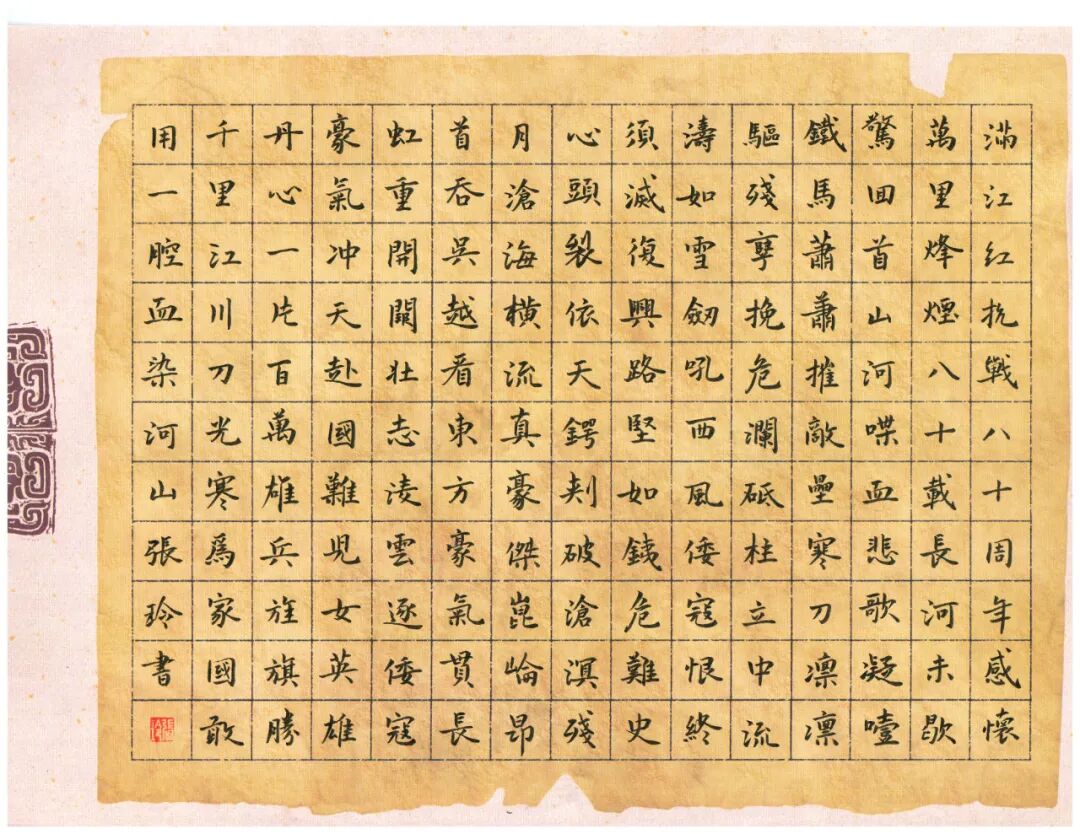 滿江紅抗戰八十周年感懷
萬里烽煙八十載長河未歇
驚回首山河喋血悲歌凝噎
鐵馬蕭蕭摧敵壘寒刀凛凛
驅殘孽挽危瀾砥柱立中流
濤如雪劒吼西風倭寇恨終
須滅復興路堅如銕危難史
心頭裂依天鍔刾破滄溟殘
月滄海橫流真豪傑崑崘昂
首吞吳越看東方豪氣貫長
虹重開闢壯志凌雲逐倭寇
豪氣冲天赴國難児女英雄
丹心一片百萬雄兵旌旗勝
千里江川刀光寒爲家國敢
用一腔血染河山張玲書